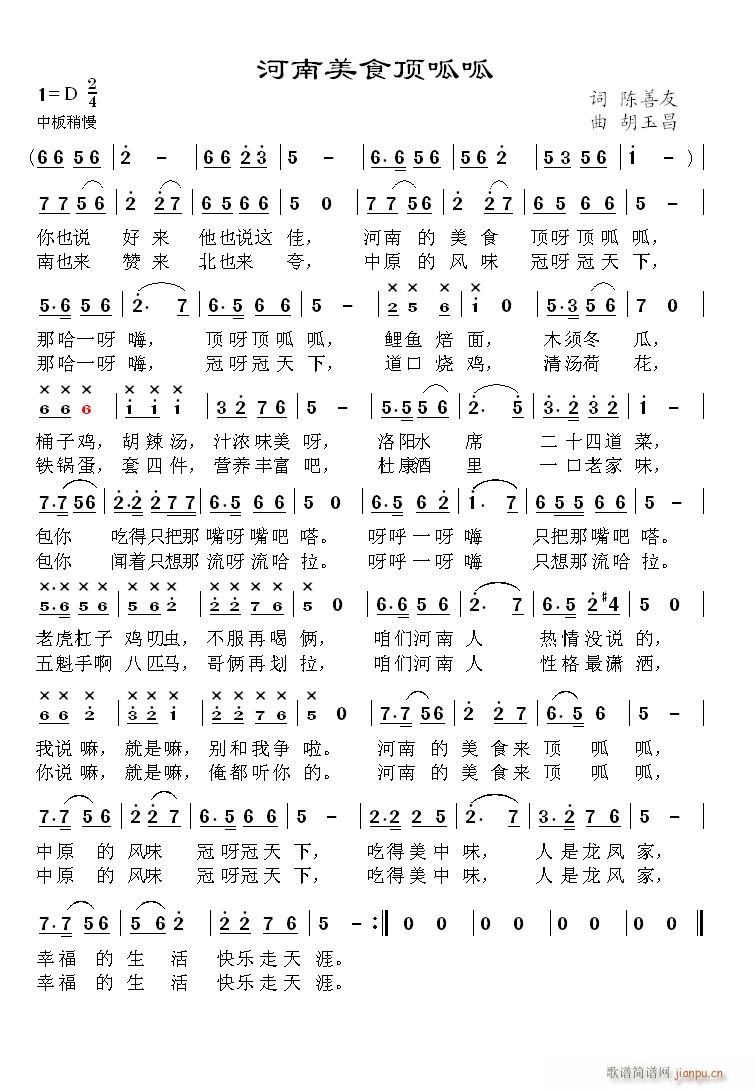 河南美食顶呱呱
1=D 2/4
词 陈善友
中板稍慢
曲 胡玉昌
(6 6 5 6 | 2 - | 6 6 2 3 | 5 - | 6. 6 5 6 | 6 2 | 5 3 5 6 | 1 - ) |
7 7 5 6 | 2 2 7 | 6 5 6 6 | 5 0 | 7 7 5 6 | 2 2 7 | 5 5 6 7 6 | 5 - |
你也说 好来 他也说这佳, 河南的美食 顶呀顶呱呱,
南也来 赞来 北也来 夸, 中原的风味 冠呀冠天下,
5. 6 5 6 | 2. 7 | 6. 5 6 6 | 5 - | 2 5 6 6 | 1 0 | 5. 3 5 6 | 7 0 |
那哈一呀嗨, 顶呀顶呱呱, 鲤鱼焙面, 木须冬瓜,
那哈一呀嗨, 冠呀冠天下, 道口烧鸡, 清汤荷花,
6 6 6 | 1 1 1 | 3 2 7 6 | 5 - | 5. 5 5 6 | 2. 5 | 3. 2 3 2 | 5 - |
桶子鸡, 胡辣汤, 汁浓味美呀, 洛阳水席 二十四道菜,
铁锅蛋, 套四件, 营养丰富吧, 杜康酒里 一口老家味,
7. 7 5 6 | 2. 2 2 7 7 | 6. 5 6 6 | 5 0 | 6. 5 6 2 | 1. 7 | 6. 5 5 6 6 | 5 0 |
包你 吃得只把那嘴呀嘴吧嗒。 呀呼一呀嗨 只把那嘴吧嗒。
包你 闻着只想那流呀流哈拉。 呀呼一呀嗨 只想那流哈拉。
5. 6 5 5 | 5 6 2 | 2 2 7 6 | 5 0 | 6. 6 5 6 | 2. 7 | 6. 5 2 #4 | 5 - |
老虎杠子 鸡叨虫, 不服再喝俩, 咱们河南人 热情没说的,
五魁手啊 八匹马, 哥俩再划拉, 咱们河南人 性格最潇洒,
6 6 2 | 3 2 1 | 2 2 7 6 | 5 0 | 7. 7 5 6 | 2 2 7 | 6. 5 6 | 5 - |
我说嘛, 就是嘛, 别和我争啦。 河南的美食来顶呱呱,
你说嘛, 就是嘛, 俺都听你的。 河南的美食来顶呱呱,
7. 7 5 6 | 2 2 7 | 6. 5 5 6 6 | 5 - | 2. 2 2 5 | 2. 7 | 3. 2 7 6 | 5 - |
中原的风味 冠呀冠天下, 吃得美中味, 人是龙凤家,
中原的风味 冠呀冠天下, 吃得美中味, 人是龙凤家,
7. 7 5 6 | 5 6 2 | 2 2 7 6 | 5 - :| 0 0 | 0 0 | 0 0 | 0 0 ‖
幸福的生活 快乐走天涯。
幸福的生活 快乐走天涯。
歌谱简谱网
jianpu.cn